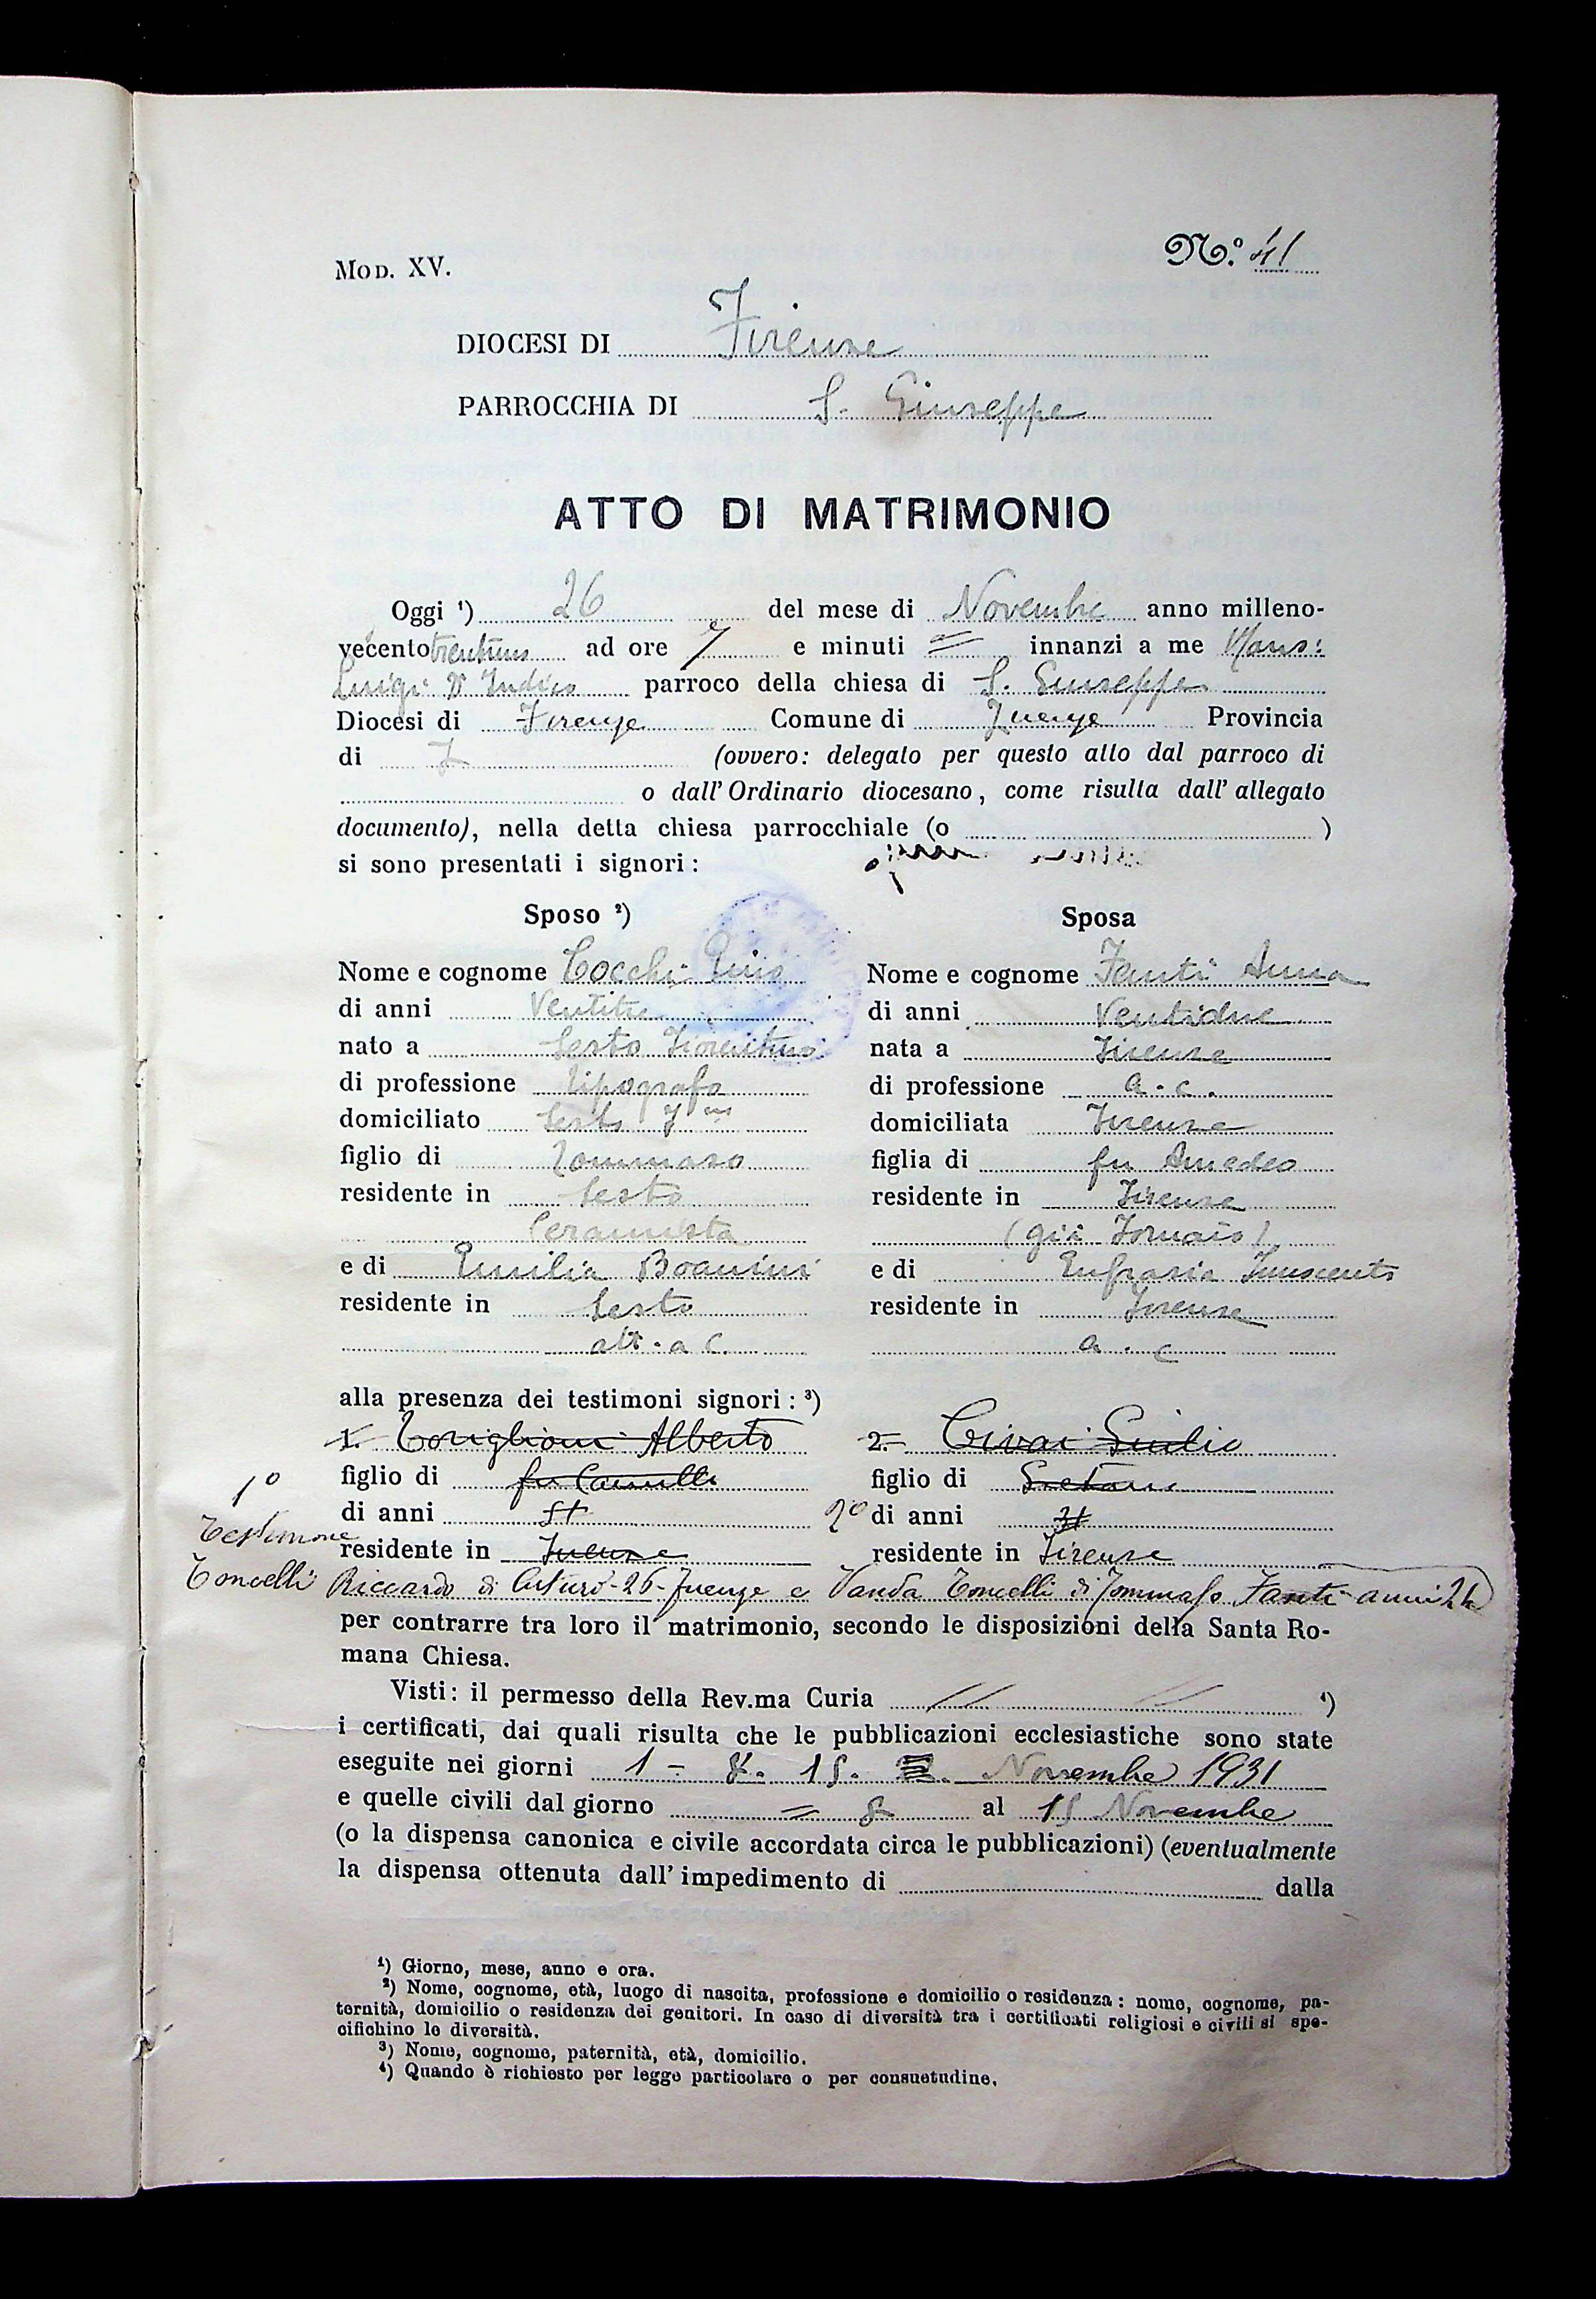 Mod. XV.
N.° 41
DIOCESI DI Firenze
PARROCCHIA DI S. Giuseppe
ATTO DI MATRIMONIO
Oggi ¹) 26 del mese di Novembre anno milleno-
vecento trentuno ad ore 7 e minuti = innanzi a me Mons:
Luigi D'Indico parroco della chiesa di S. Giuseppe
Diocesi di Firenze Comune di Firenze Provincia
di F (ovvero: delegato per questo atto dal parroco di
o dall'Ordinario diocesano, come risulta dall'allegato
documento), nella detta chiesa parrocchiale (o )
si sono presentati i signori:
Sposo ²)
Nome e cognome Cocchi
di anni Ventitre
nato a Sesto Fiorentino
di professione tipografo
domiciliato Sesto F no
figlio di Tommaso
residente in Sesto
Ceramista
e di Emilia Boanini
residente in Sesto
att. a c.
Sposa
Nome e cognome Fanti Anna
di anni Ventidue
nata a Firenze
di professione a. c.
domiciliata Firenze
figlia di fu Amedeo
residente in Firenze
(già Fornaio)
e di Eufrasia Innocenti
residente in Firenze
a. c
alla presenza dei testimoni signori: ³)
1. Coniglioni Alberto
figlio di fu Camillo
di anni
residente in Firenze
2. Civai Giulio
figlio di Gaetano
2° di anni 31
residente in Firenze
1°
Testimone
Toncelli Riccardo di Arturo - 26 - Firenze e Vanda Toncelli di Tommaso Fanti anni 24
per contrarre tra loro il matrimonio, secondo le disposizioni della Santa Ro-
mana Chiesa.
Visti: il permesso della Rev.ma Curia // // ⁴)
i certificati, dai quali risulta che le pubblicazioni ecclesiastiche sono state
eseguite nei giorni 1 - 8. 15. Novembre 1931
e quelle civili dal giorno = 8 al 15 Novembre
(o la dispensa canonica e civile accordata circa le pubblicazioni) (eventualmente
la dispensa ottenuta dall'impedimento di dalla
¹) Giorno, mese, anno e ora.
²) Nome, cognome, età, luogo di nascita, professione e domicilio o residenza: nome, cognome, pa-
ternità, domicilio o residenza dei genitori. In caso di diversità tra i certificati religiosi e civili si spe-
cifichino le diversità.
³) Nome, cognome, paternità, età, domicilio.
⁴) Quando è richiesto per legge particolare o per consuetudine.